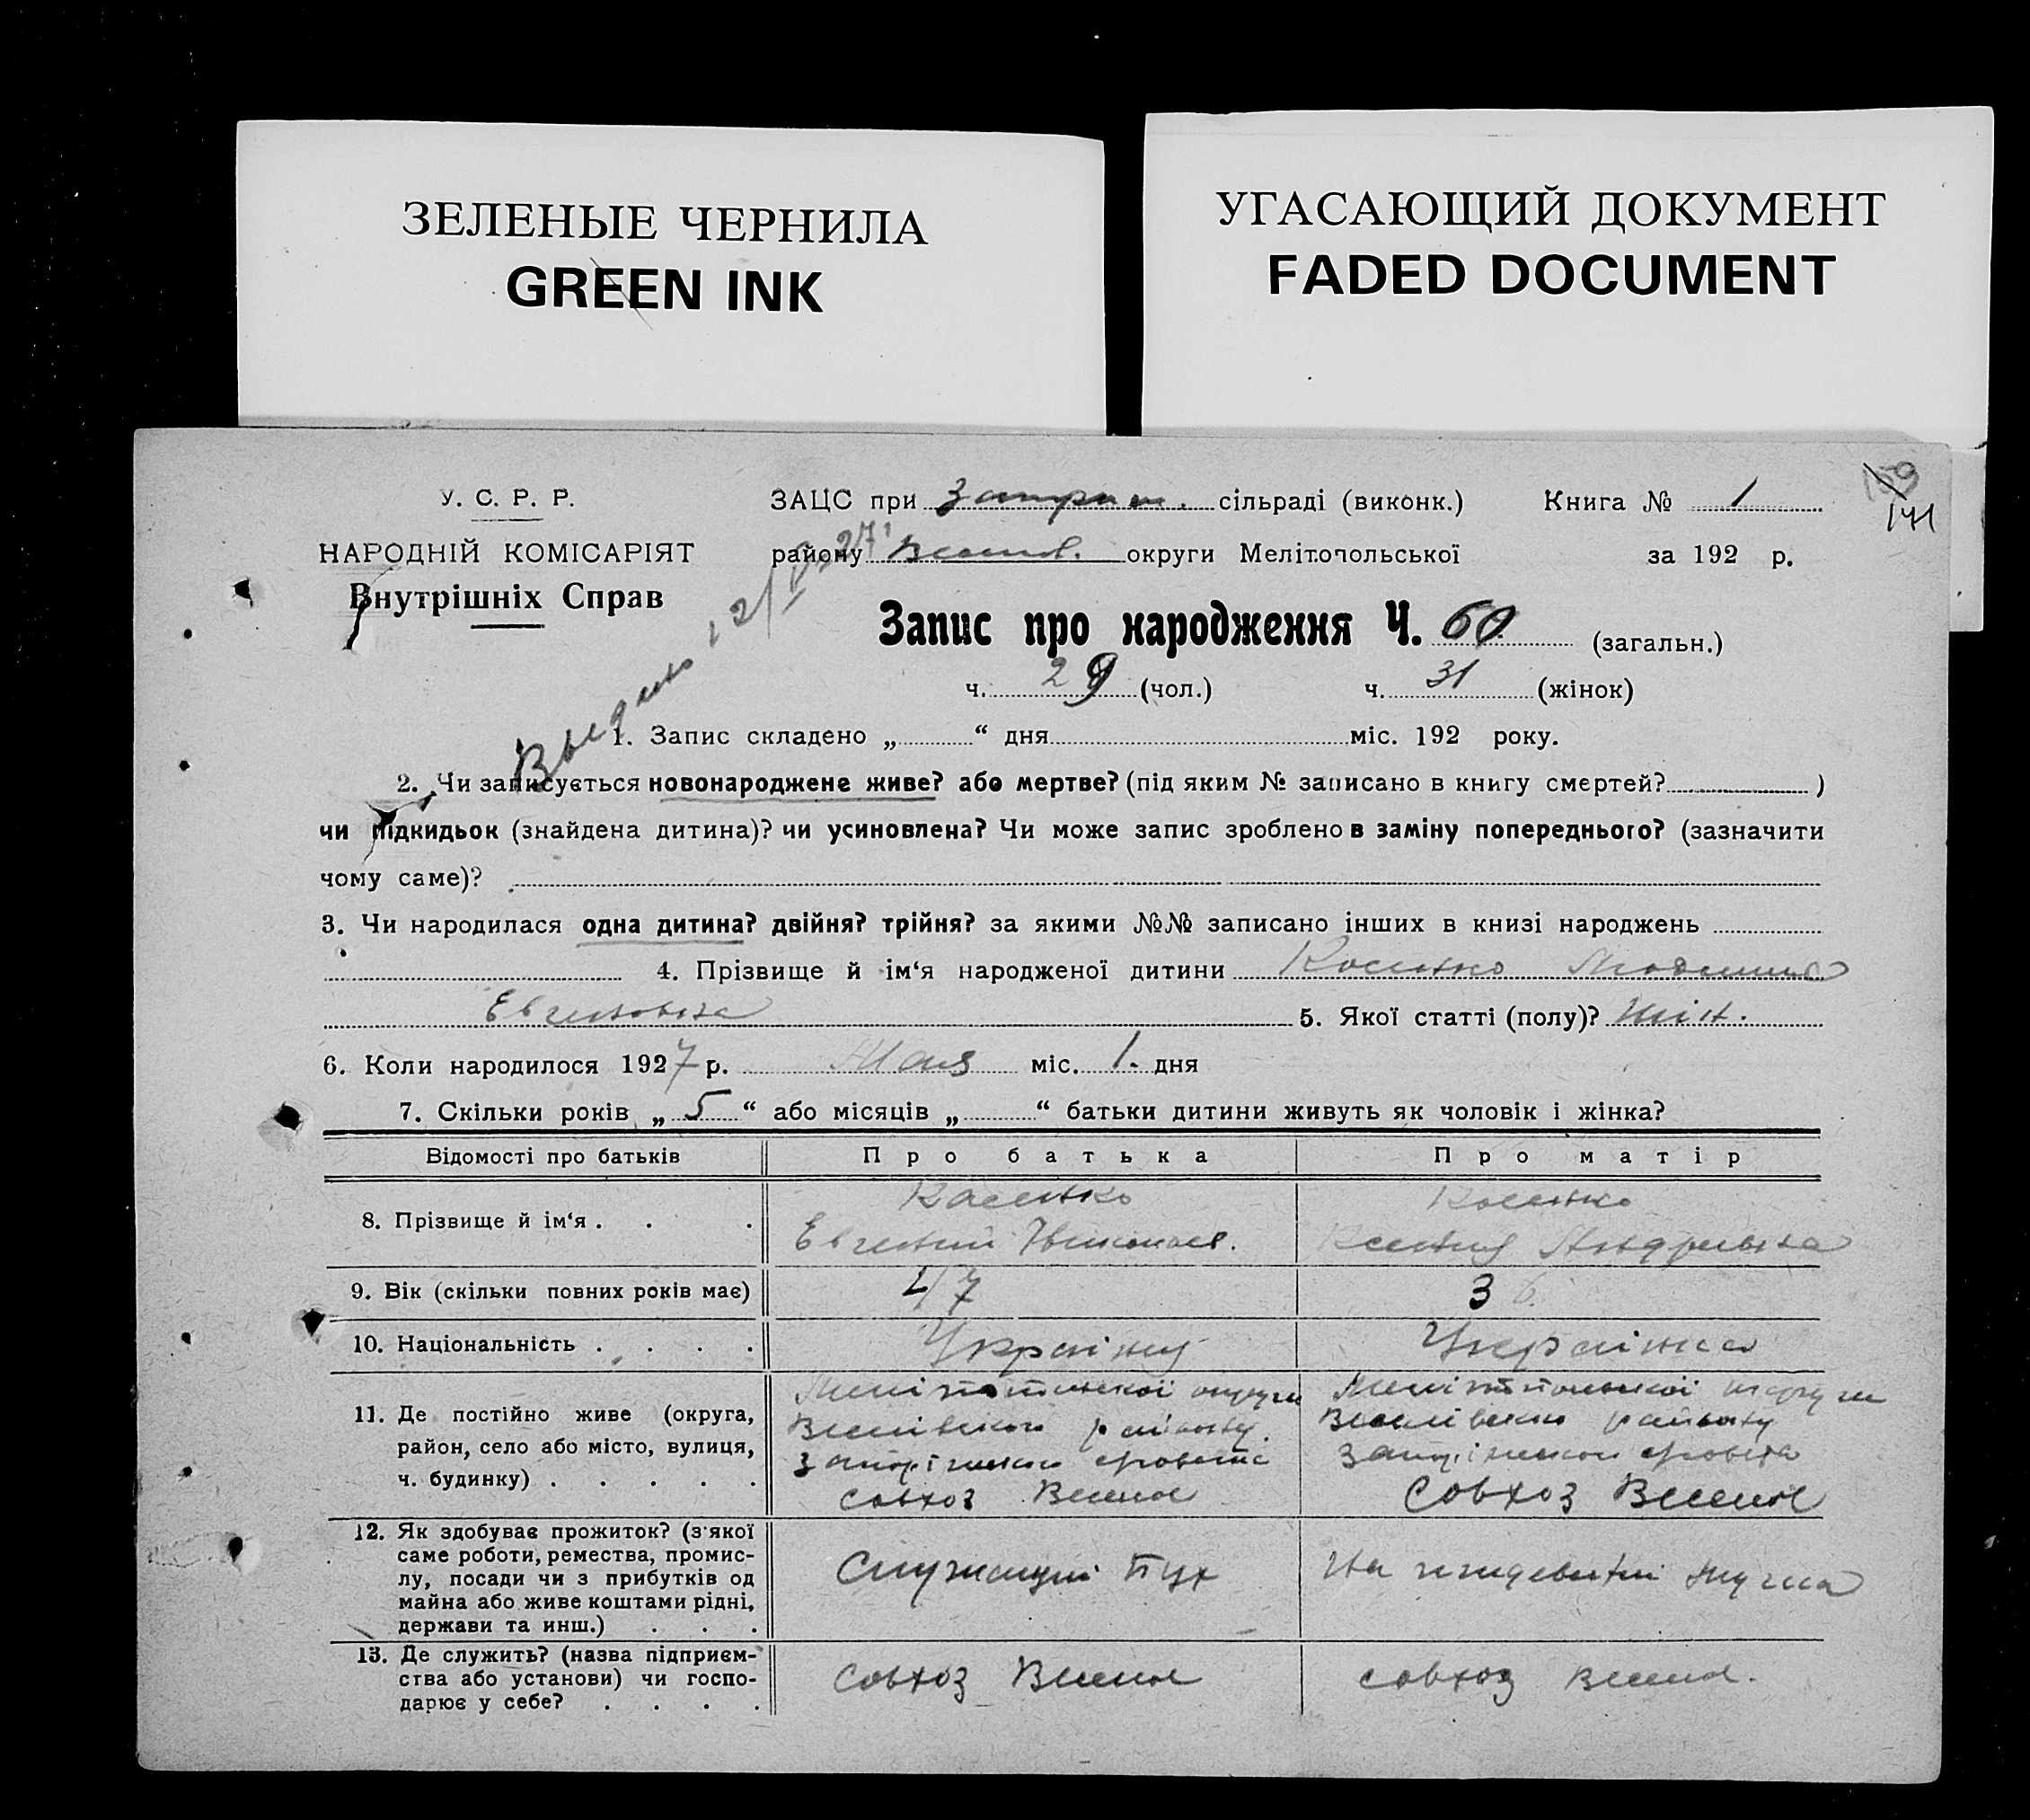 ЗЕЛЕНЫЕ ЧЕРНИЛА
GREEN INK
УГАСАЮЩИЙ ДОКУМЕНТ
FADED DOCUMENT
159
141
У. С. Р. Р.
НАРОДНІЙ КОМІСАРІЯТ
Внутрішніх Справ
ЗАЦС при сільраді (виконк.) Книга № 1
району Весел. округи Мелітопольської за 192 р.
Запис про народження Ч. 60 (загальн.)
ч. 29 (чол.) ч. 31 (жінок)
1. Запис складено „ “ дня міс. 192 року.
2. Чи записується новонароджене живе? або мертве? (під яким № записано в книгу смертей? )
чи підкидьок (знайдена дитина)? чи усиновлена? Чи може запис зроблено в заміну попереднього? (зазначити
чому саме)?
3. Чи народилася одна дитина? двійня? трійня? за якими №№ записано інших в книзі народжень
4. Прізвище й ім‘я народженої дитини Косенко Людмила
Евгеновна 5. Якої статті (полу)? Жін.
6. Коли народилося 1927 р. Мая міс. 1. дня
7. Скільки років „ 5 “ або місяців „ “ батьки дитини живуть як чоловік і жінка?
Відомості про батьків Про батька Про матір
8. Прізвище й ім‘я . . . Косенко Косенко
Евгений Николаев. Ксения Андреевна
9. Вік (скільки повних років має) 47 36
10. Національність . . . . Українец Українка
11. Де постійно живе (округа, Мелітопольскої округи Мелітопольскої округи
район, село або місто, вулиця, Веселівского району Веселівского району
ч. будинку) . . . . .
совхоз Веселое Совхоз Веселое
12. Як здобуває прожиток? (з'якої
саме роботи, ремества, промис-
лу, посади чи з прибутків од Служащий На иждевении мужа
майна або живе коштами рідні,
держави та инш.) . . .
13. Де служить? (назва підприєм-
ства або установи) чи госпо- Совхоз Веселое совхоз Весел.
дарює у себе? . . . .